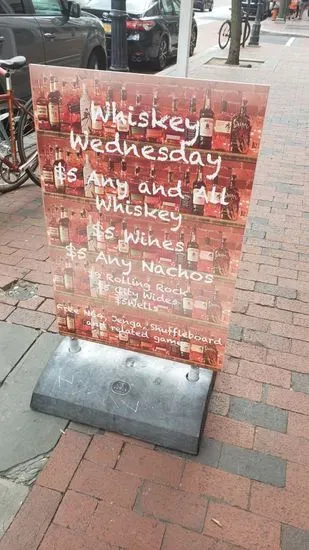 Whiskey
Wednesday
$5 Any and All
Whiskey
$5 Wines
$5 Any Nachos
Rolling Rock
$5 City Wides
$5Wells
Free N64, Jenga, Shuffleboard
and related games